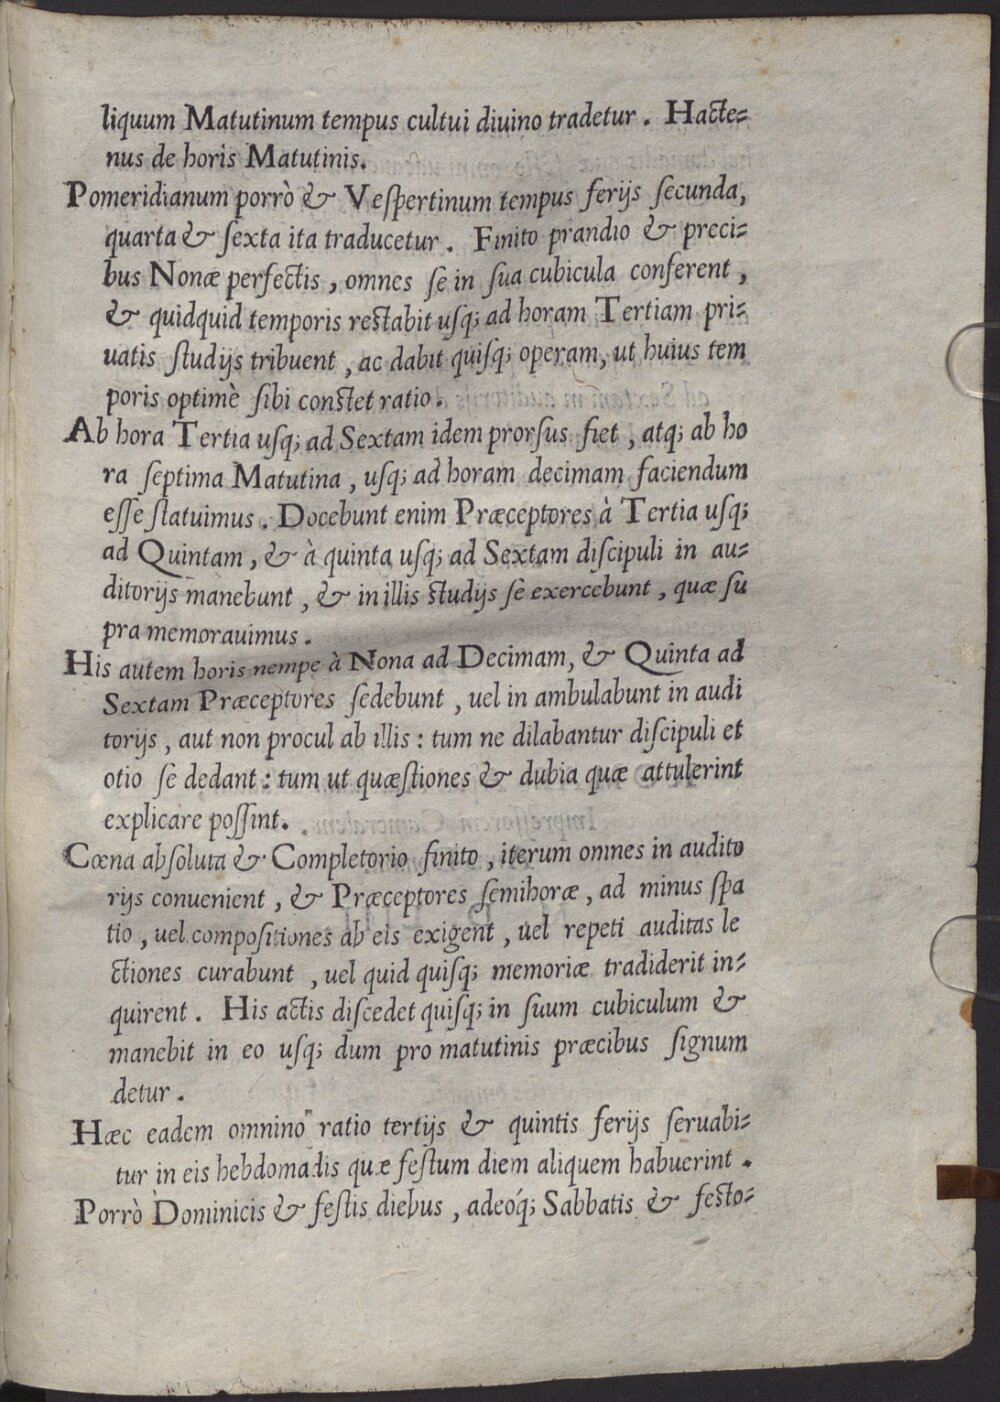 liquum Matutinum tempus cultui diuino tradetur. Hacte=
nus de horis Matutinis.
Pomeridianum porrò & Veſpertinum tempus ferijs ſecunda,
quarta & ſexta ita traducetur. Finito prandio & preci=
bus Nonæ perfectis, omnes ſe in ſua cubicula conferent,
& quidquid temporis reſtabit uſq; ad horam Tertiam pri=
uatis ſtudijs tribuent, ac dabit quiſq; operam, ut huius tem
poris optimè ſibi conſtet ratio.
Ab hora Tertia uſq; ad Sextam idem prorſus fiet, atq; ab ho
ra ſeptima Matutina, uſq; ad horam decimam faciendum
eſſe ſtatuimus. Docebunt enim Præceptores à Tertia uſq;
ad Quintam, & à quinta uſq; ad Sextam diſcipuli in au=
ditorijs manebunt, & in illis ſtudijs ſe exercebunt, quæ ſu
pra memorauimus.
His autem horis nempe à Nona ad Decimam, & Quinta ad
Sextam Præceptores ſedebunt, uel in ambulabunt in audi
torijs, aut non procul ab illis: tum ne dilabantur diſcipuli et
otio ſe dedant: tum ut quæſtiones & dubia quæ attulerint
explicare poſſint.
Cœna abſoluta & Completorio finito, iterum omnes in audito
rijs conuenient, & Præceptores ſemihoræ, ad minus ſpa
tio, uel compoſitiones ab eis exigent, uel repeti auditas le
ctiones curabunt, uel quid quiſq; memoriæ tradiderit in=
quirent. His actis diſcedet quiſq; in ſuum cubiculum &
manebit in eo uſq; dum pro matutinis præcibus ſignum
detur.
Hæc eadem omnino ratio tertijs & quintis ferijs ſeruabi=
tur in eis hebdomadis quæ feſtum diem aliquem habuerint.
Porrò Dominicis & feſtis diebus, adeóq; Sabbatis & feſto=